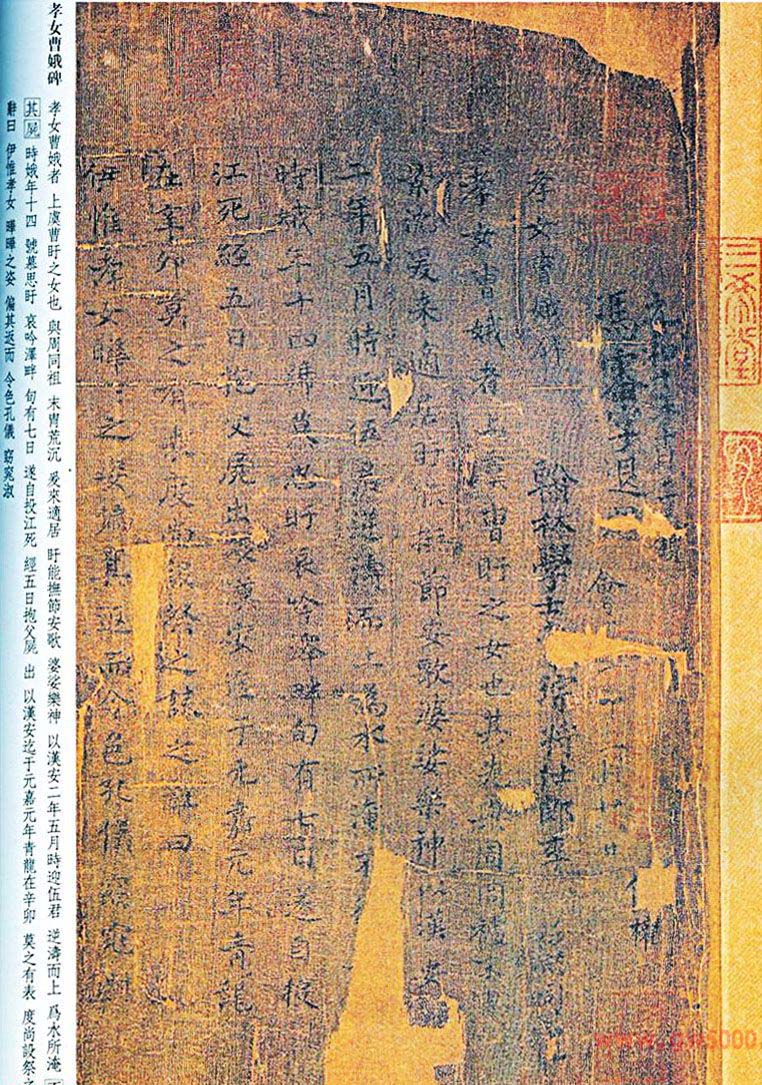 三希堂
馮審字退
翰林學士 將仕郎
孝女曹娥碑
孝女曹娥者上虞曹盱之女也其先與周同祖末
荒沉爰来適居盱能撫節安歌婆娑樂神以漢安
二年五月時迎伍君逆濤而上為水所淹不
時娥年十四號慕思盱哀吟澤畔旬有七日遂自投
江死經五日抱父屍出以漢安迄于元嘉元年青龍
在辛卯莫之有表度尚設祭之誄之辭曰
伊惟孝女曄〻之姿偏其返而令色孔儀窈窕淑
孝女曹娥碑
孝女曹娥者 上虞曹盱之女也 與周同祖 末胄荒沉 爰來適居 盱能撫節安歌 婆娑樂神 以漢安二年五月時迎伍君 逆濤而上 爲水所淹
其屍 時娥年十四 號慕思盱 哀吟澤畔 旬有七日 遂自投江死 經五日抱父屍 出 以漢安迄于元嘉元年青龍在辛卯 莫之有表 度尚設祭之
辭曰 伊惟孝女 曄曄之姿 偏其返而 令色孔儀 窈窕淑